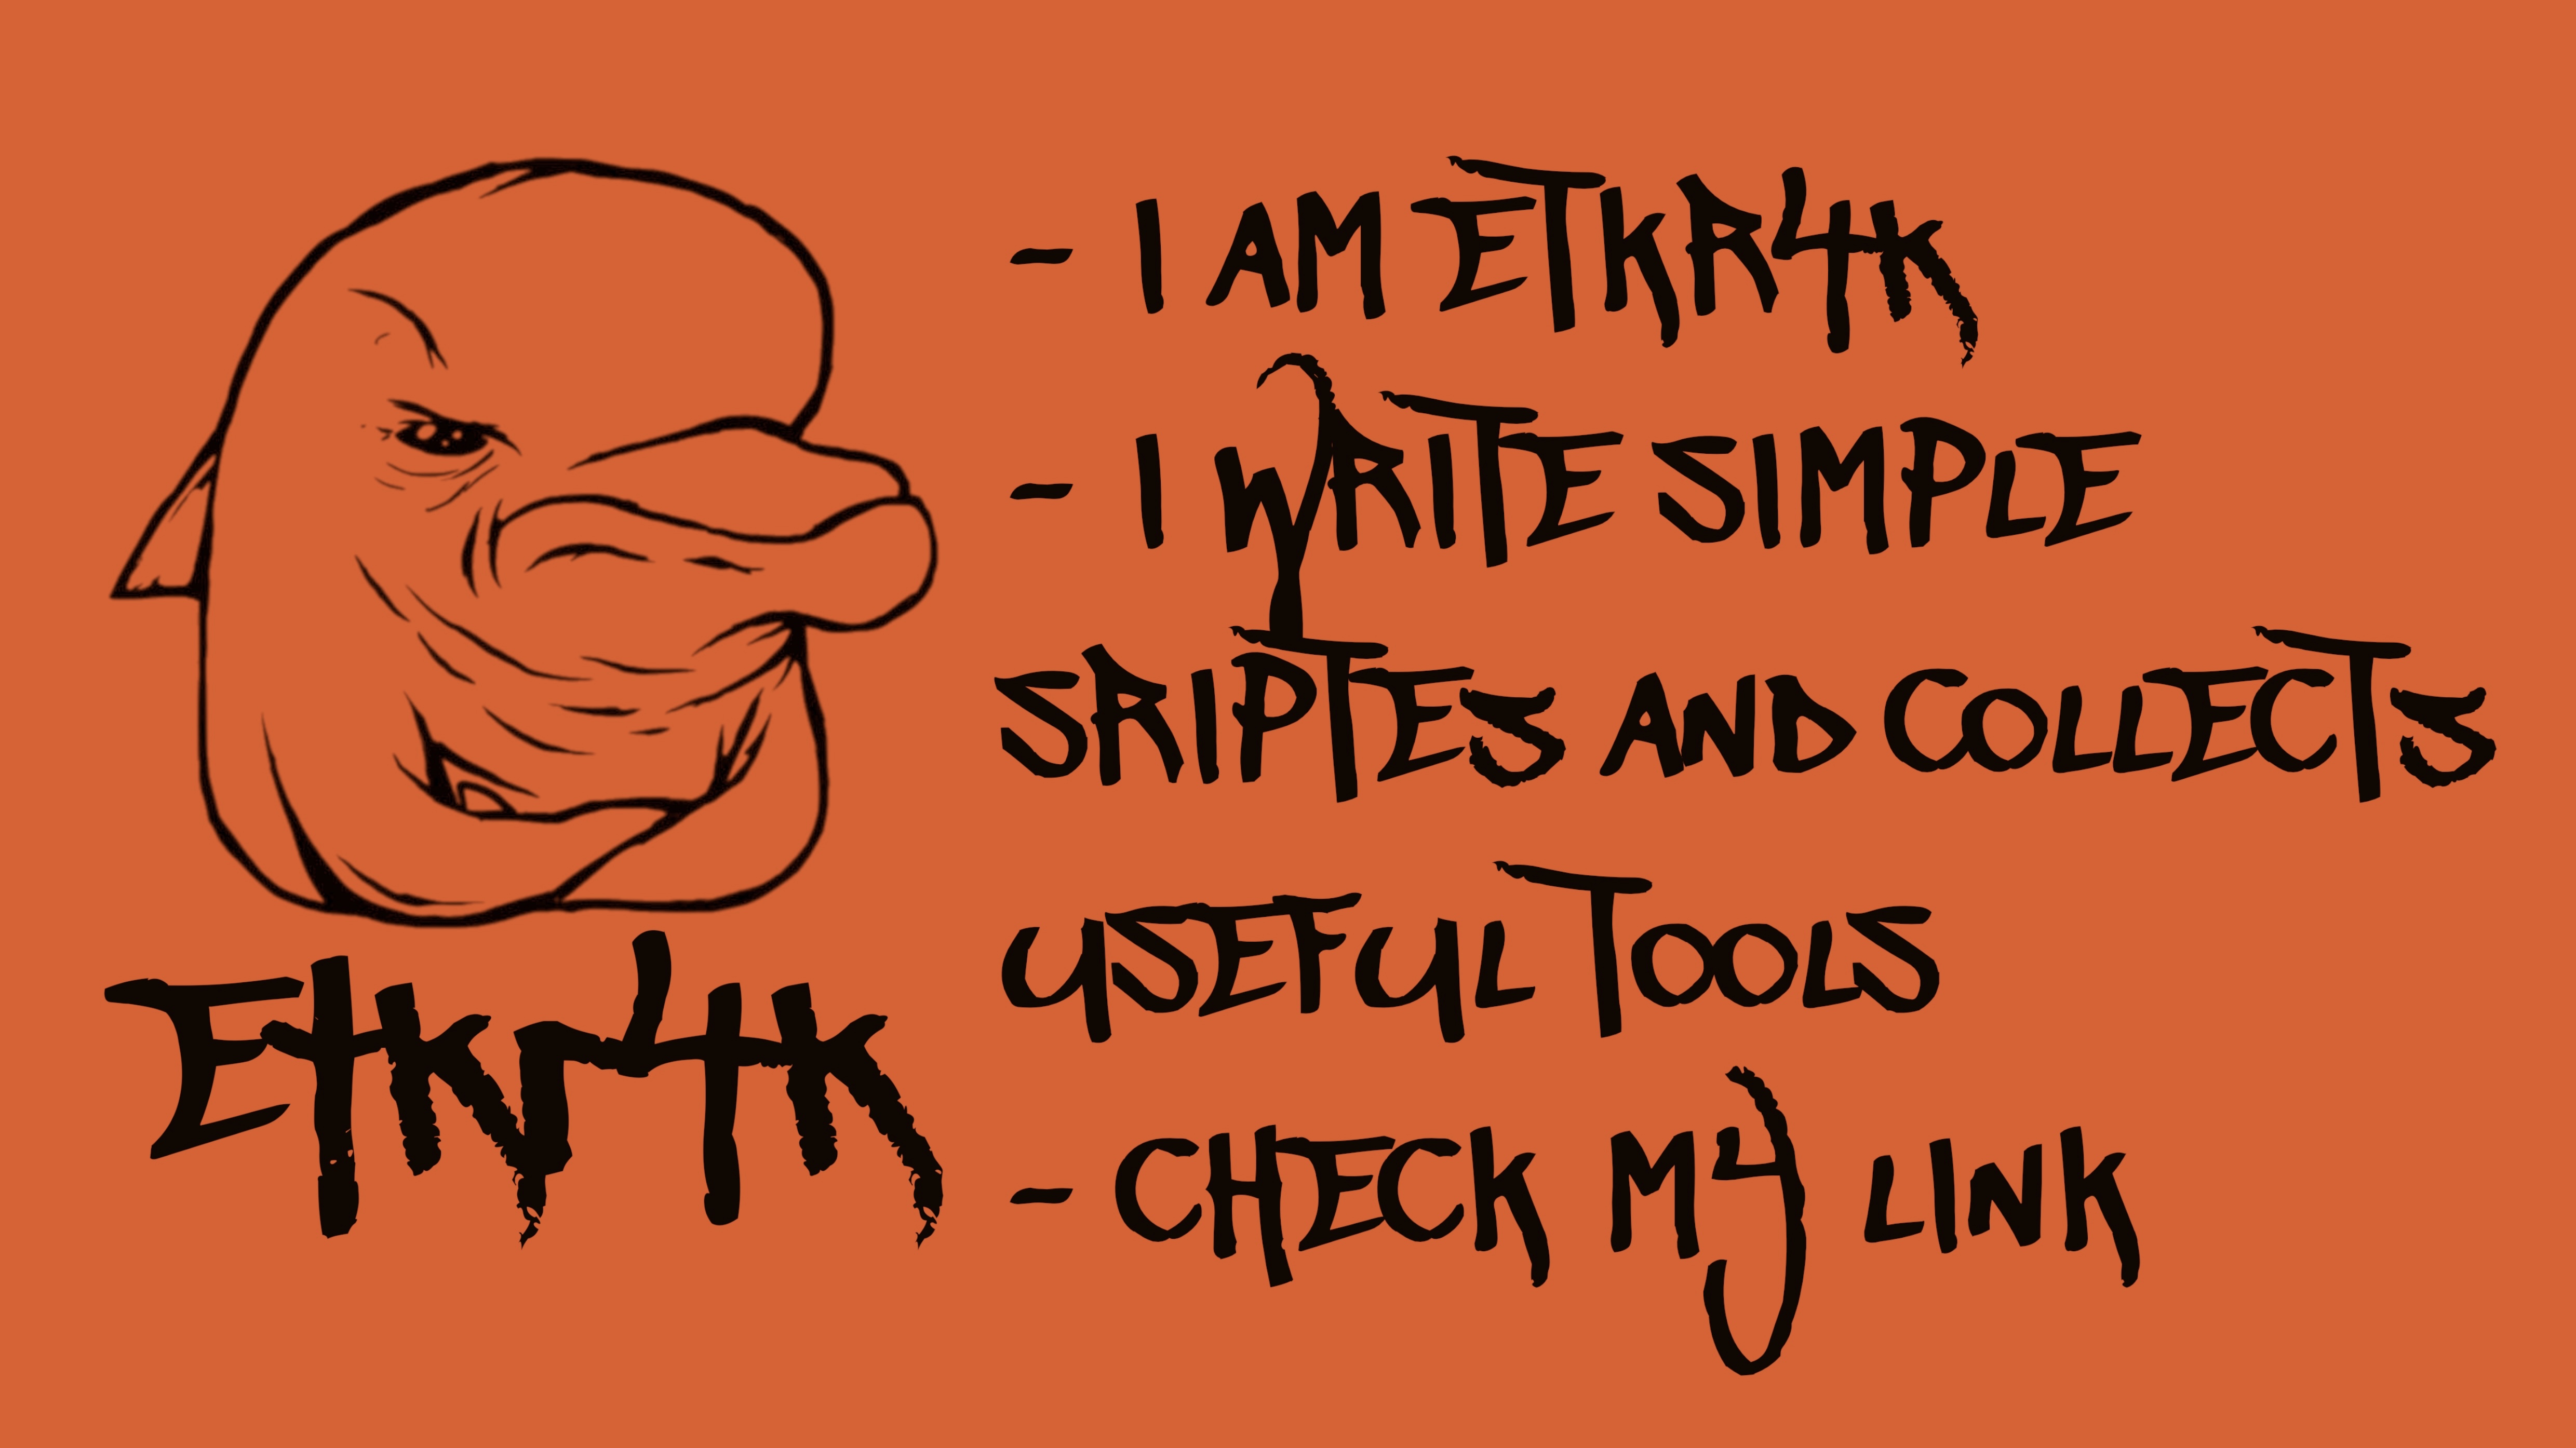 - I AM ETKR4K
- I WRITE SIMPLE
SRIPTES AND COLLECTS
USEFUL TOOLS
- CHECK MY LINK
Etkr4k